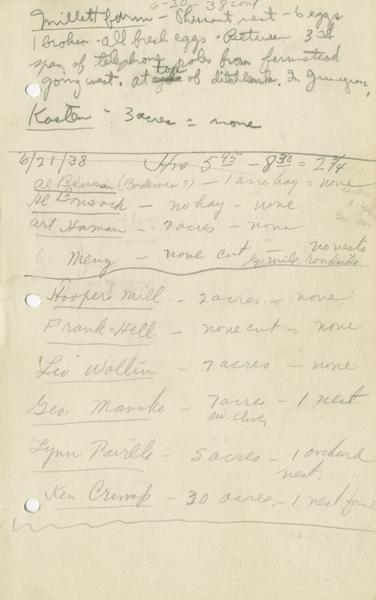 6-20-38 cont
Millett farm - Pheasant nest - 6 eggs
1 Broken - all fresh eggs - Between 3rd
span of telephone poles from farmstead
going west. at edge of ditchbank. In Junegrass,
Kasten - 3 acres = none
6/21/38 Hrs 5 45 - 8 30 = 2 3/4
Al Beuman (Bodeman?) - 1 acre hay = none
Al Bonsack - no hay - none
Art Haman - 7 acres - none
Meng - none cut - no nests
1/2 mile roadside
Hoopers Mill - 2 acres - none
Frank Hell - none cut - none
Leo Wollin - 7 acres - none
Geo. Manske - 7 acres - 1 nest
Sw. clover
Lynn Pairlls - 5 acres - 1 orchard
nest.
Ken Crump - 30 acres - 1 nest found